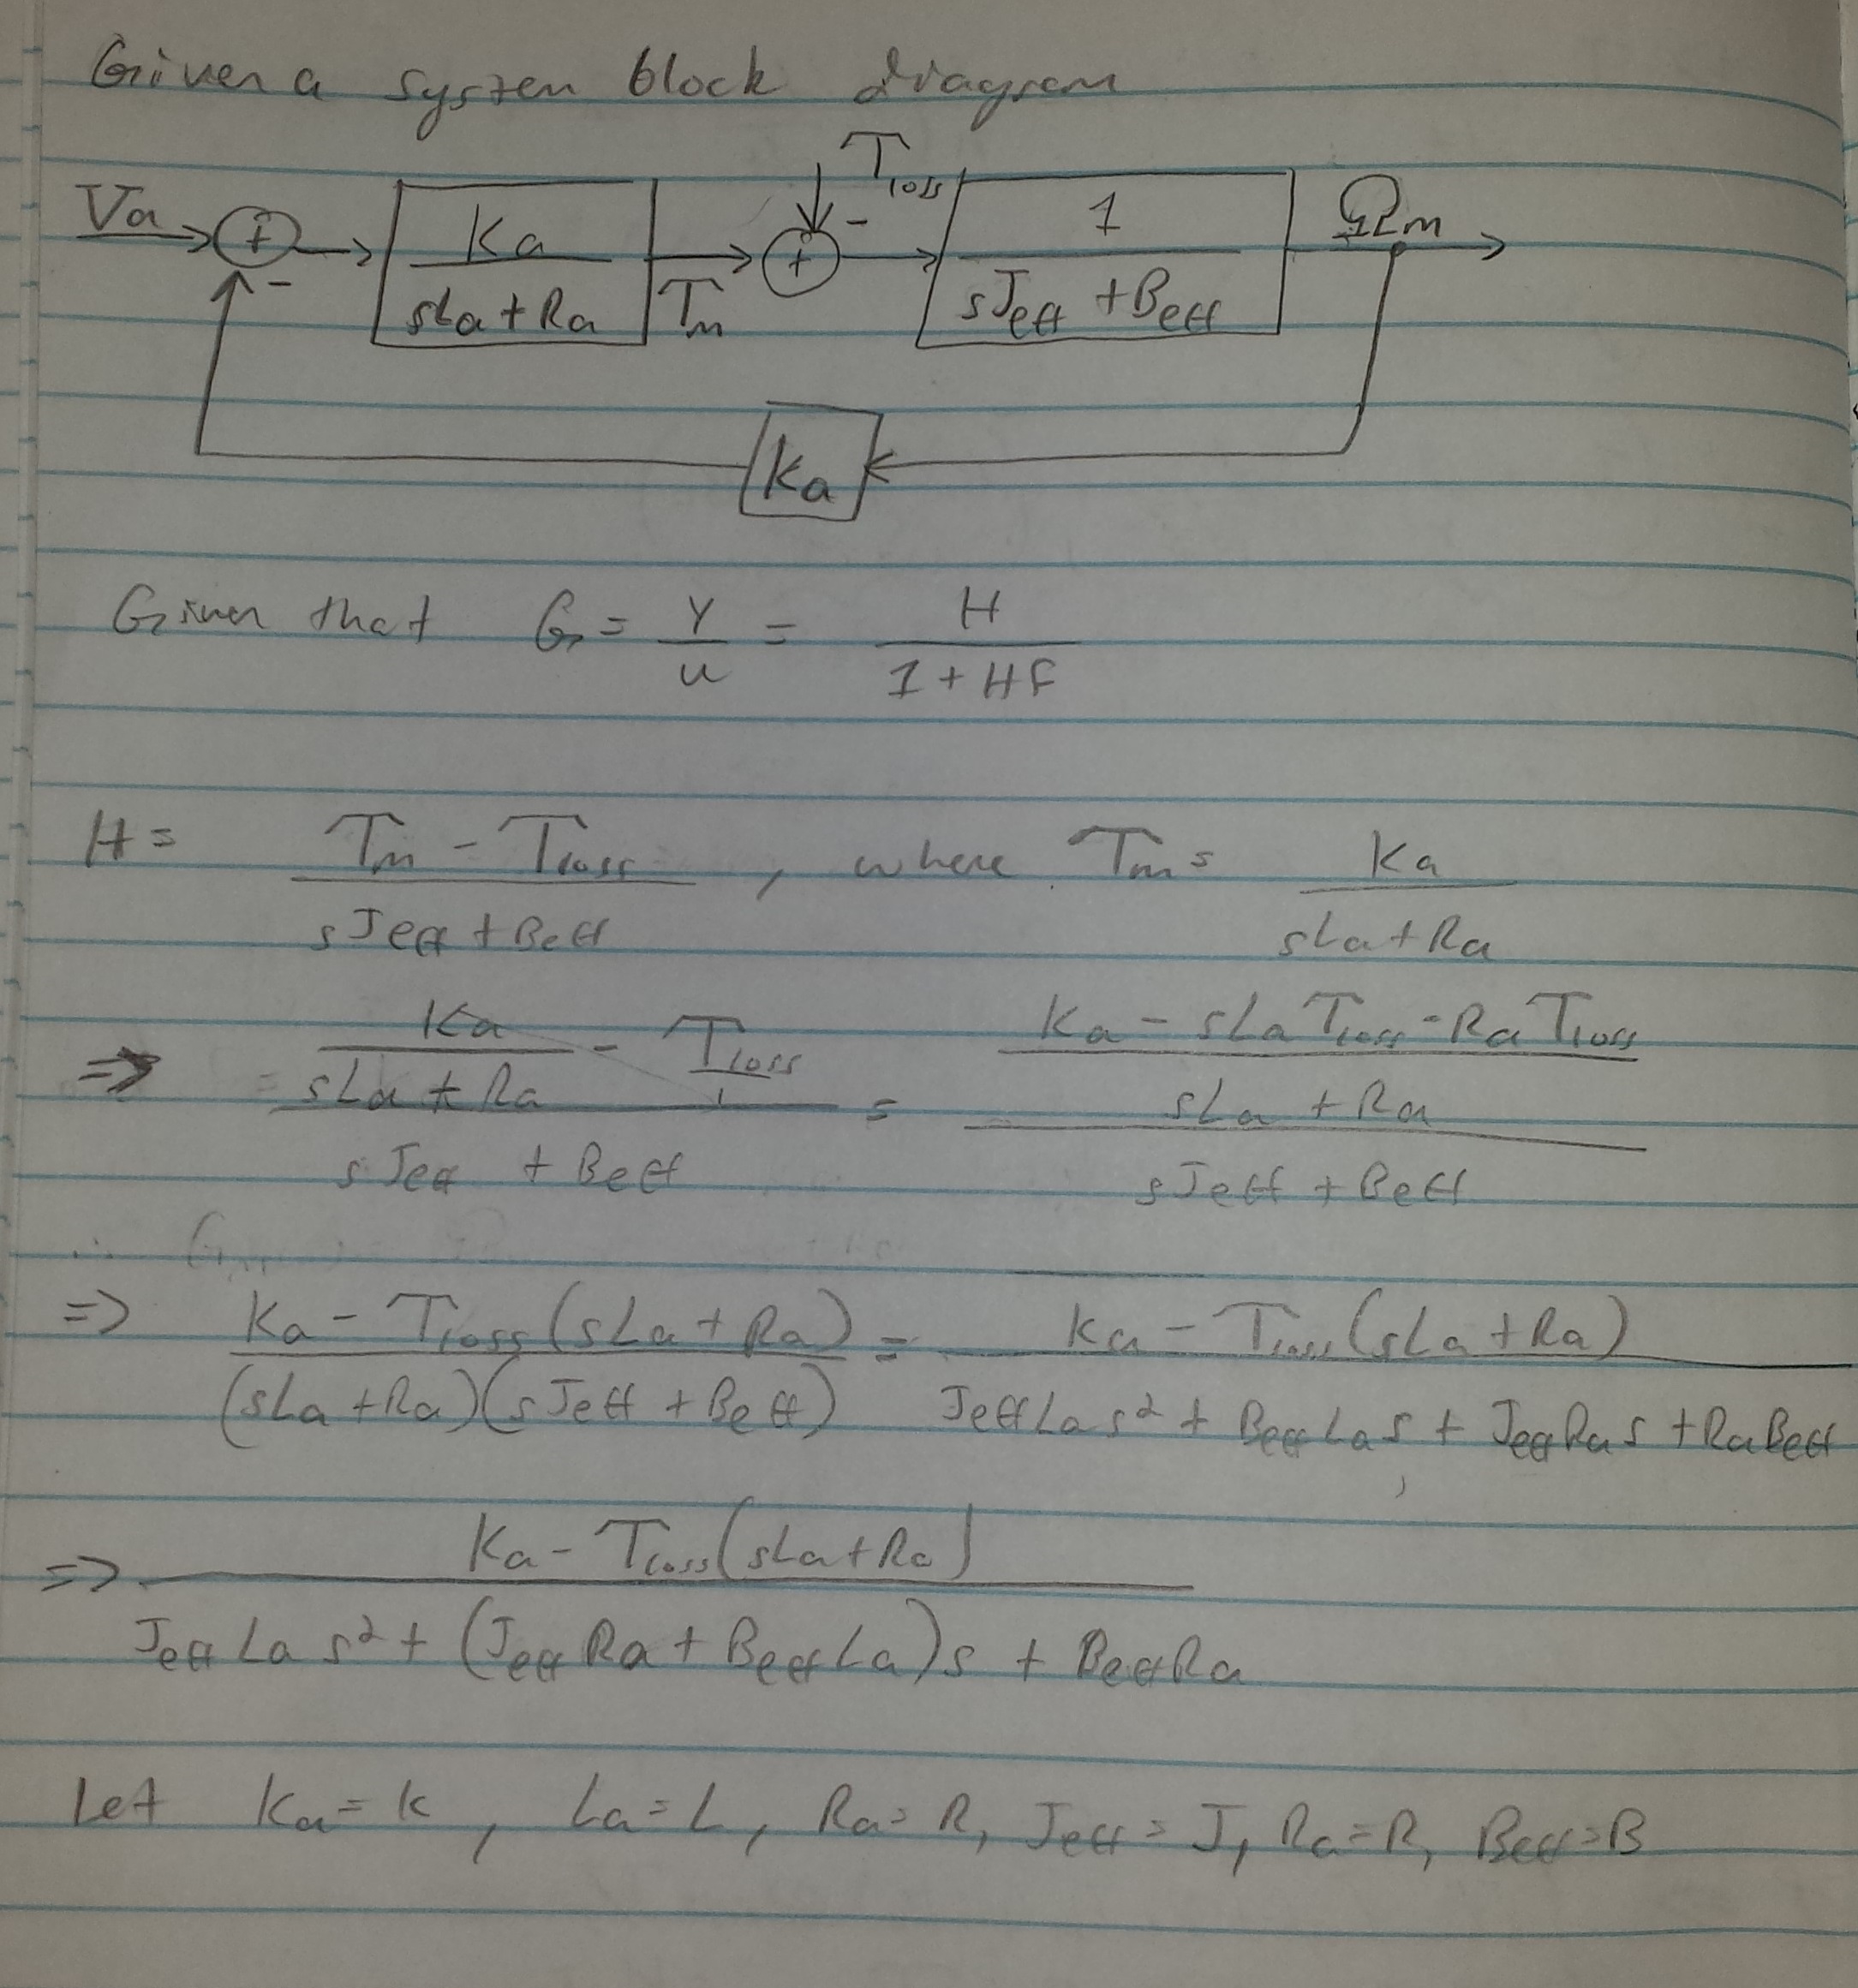 Given a system block diagram
Tloss
Va + Ka / (sLa + Ra) Tm + - 1 / (sJeff + Beff) Ωm
-
Ka
Given that G = Y/u = H / (1 + HF)
H = (Tm - Tloss) / (sJeff + Beff) , where Tm = Ka / (sLa + Ra)
=> (Ka / (sLa + Ra) - Tloss / 1) / (sJeff + Beff) = ((Ka - sLaTloss - RaTloss) / (sLa + Ra)) / (sJeff + Beff)
=> (Ka - Tloss(sLa + Ra)) / ((sLa + Ra)(sJeff + Beff)) = (Ka - Tloss(sLa + Ra)) / (JeffLas² + BeffLas + JeffRas + RaBeff)
=> (Ka - Tloss(sLa + Ra)) / (JeffLas² + (JeffRa + BeffLa)s + BeffRa)
Let Ka = K, La = L, Ra = R, Jeff = J, Ra = R, Beff = B